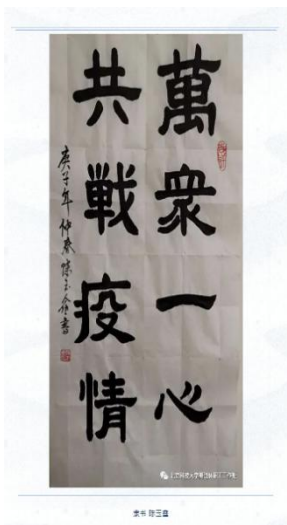 萬衆一心
共戰疫情
庚子年仲春陳玉鑫書
隶书 陈玉鑫